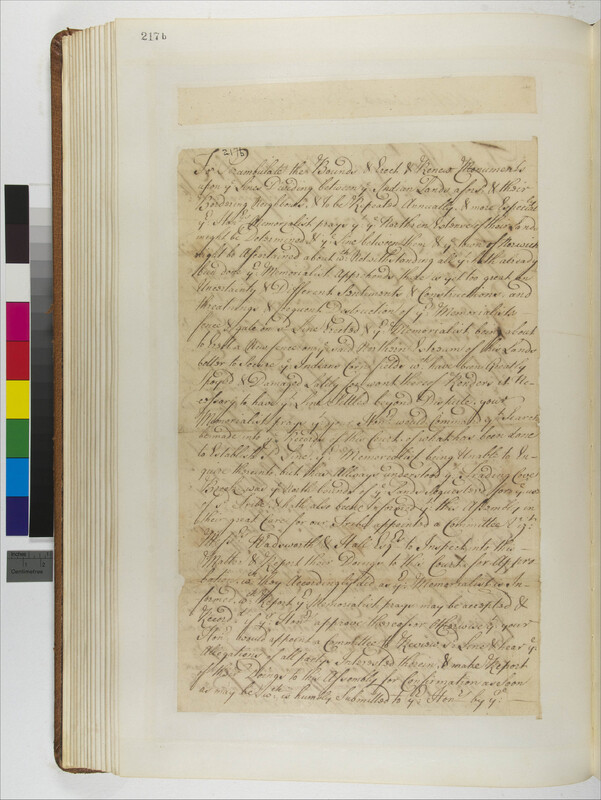 217b
217b
To Perambulate the Bounds & Erect & Renew Monuments
upon ye Lines Dividing between ye Indian Lands afors.d & their
Bordering Neighbours & to be Repeated Annually, & more Especially
ye Hon.rs Memorialist prays yt ye Northern Extent of their Land
might be Determined & ye Line between them & ye town of Norwich
ought to Ascertained about wch Notwithstanding all yt hath already
been done ye Memorialist Apprehends there is yet too great an
Uncertainty & Different Sentiments & Constructions and
threatnings & frequent Destruction of ye Memorialists
fence & gate on sd Line Erected & ye Memorialist being about
to Erect a New fence on ye said Northern Extreme of their Lands
better to Secure ye Indians Corn fields wch have been Greatly
Spoyed & Damaged Lately for want thereof Renders it Ne-
cessary to have ye Line Settled beyond Dispute, your
Memorialist prays yt your Honrs would Comand yt Search
be made into ye Records of this Court of what has been done
to Establish sd Line. ye Memorialist being Unable to En-
quire thereinto but has Allways understood yt Trading Cove
Brook was ye North bounds of ye Lands Sequestred for ye use
of sd Tribe & hath also been Informed yt this Assembly in
their great Care for our Tribe appointed a Committee viz.t
Messrs Wadsworth & Hall Esqrs to Inspect into this
Matter & Report their Doings to this Court for Appro
bation wch they Accordingly did as ye Memorialist is In-
formed wch Report ye Memorialist prays may be accepted &
Record'd if yr Honrs approve thereof or Otherwise yt your
Honrs would appoint a Committee to Review sd Line & hear ye
Allegations of all partys Interested therein & make Report
of their Doings to this Assembly for Confirmation as soon
as may be & wch is humbly Submitted to yr Honrs by yr